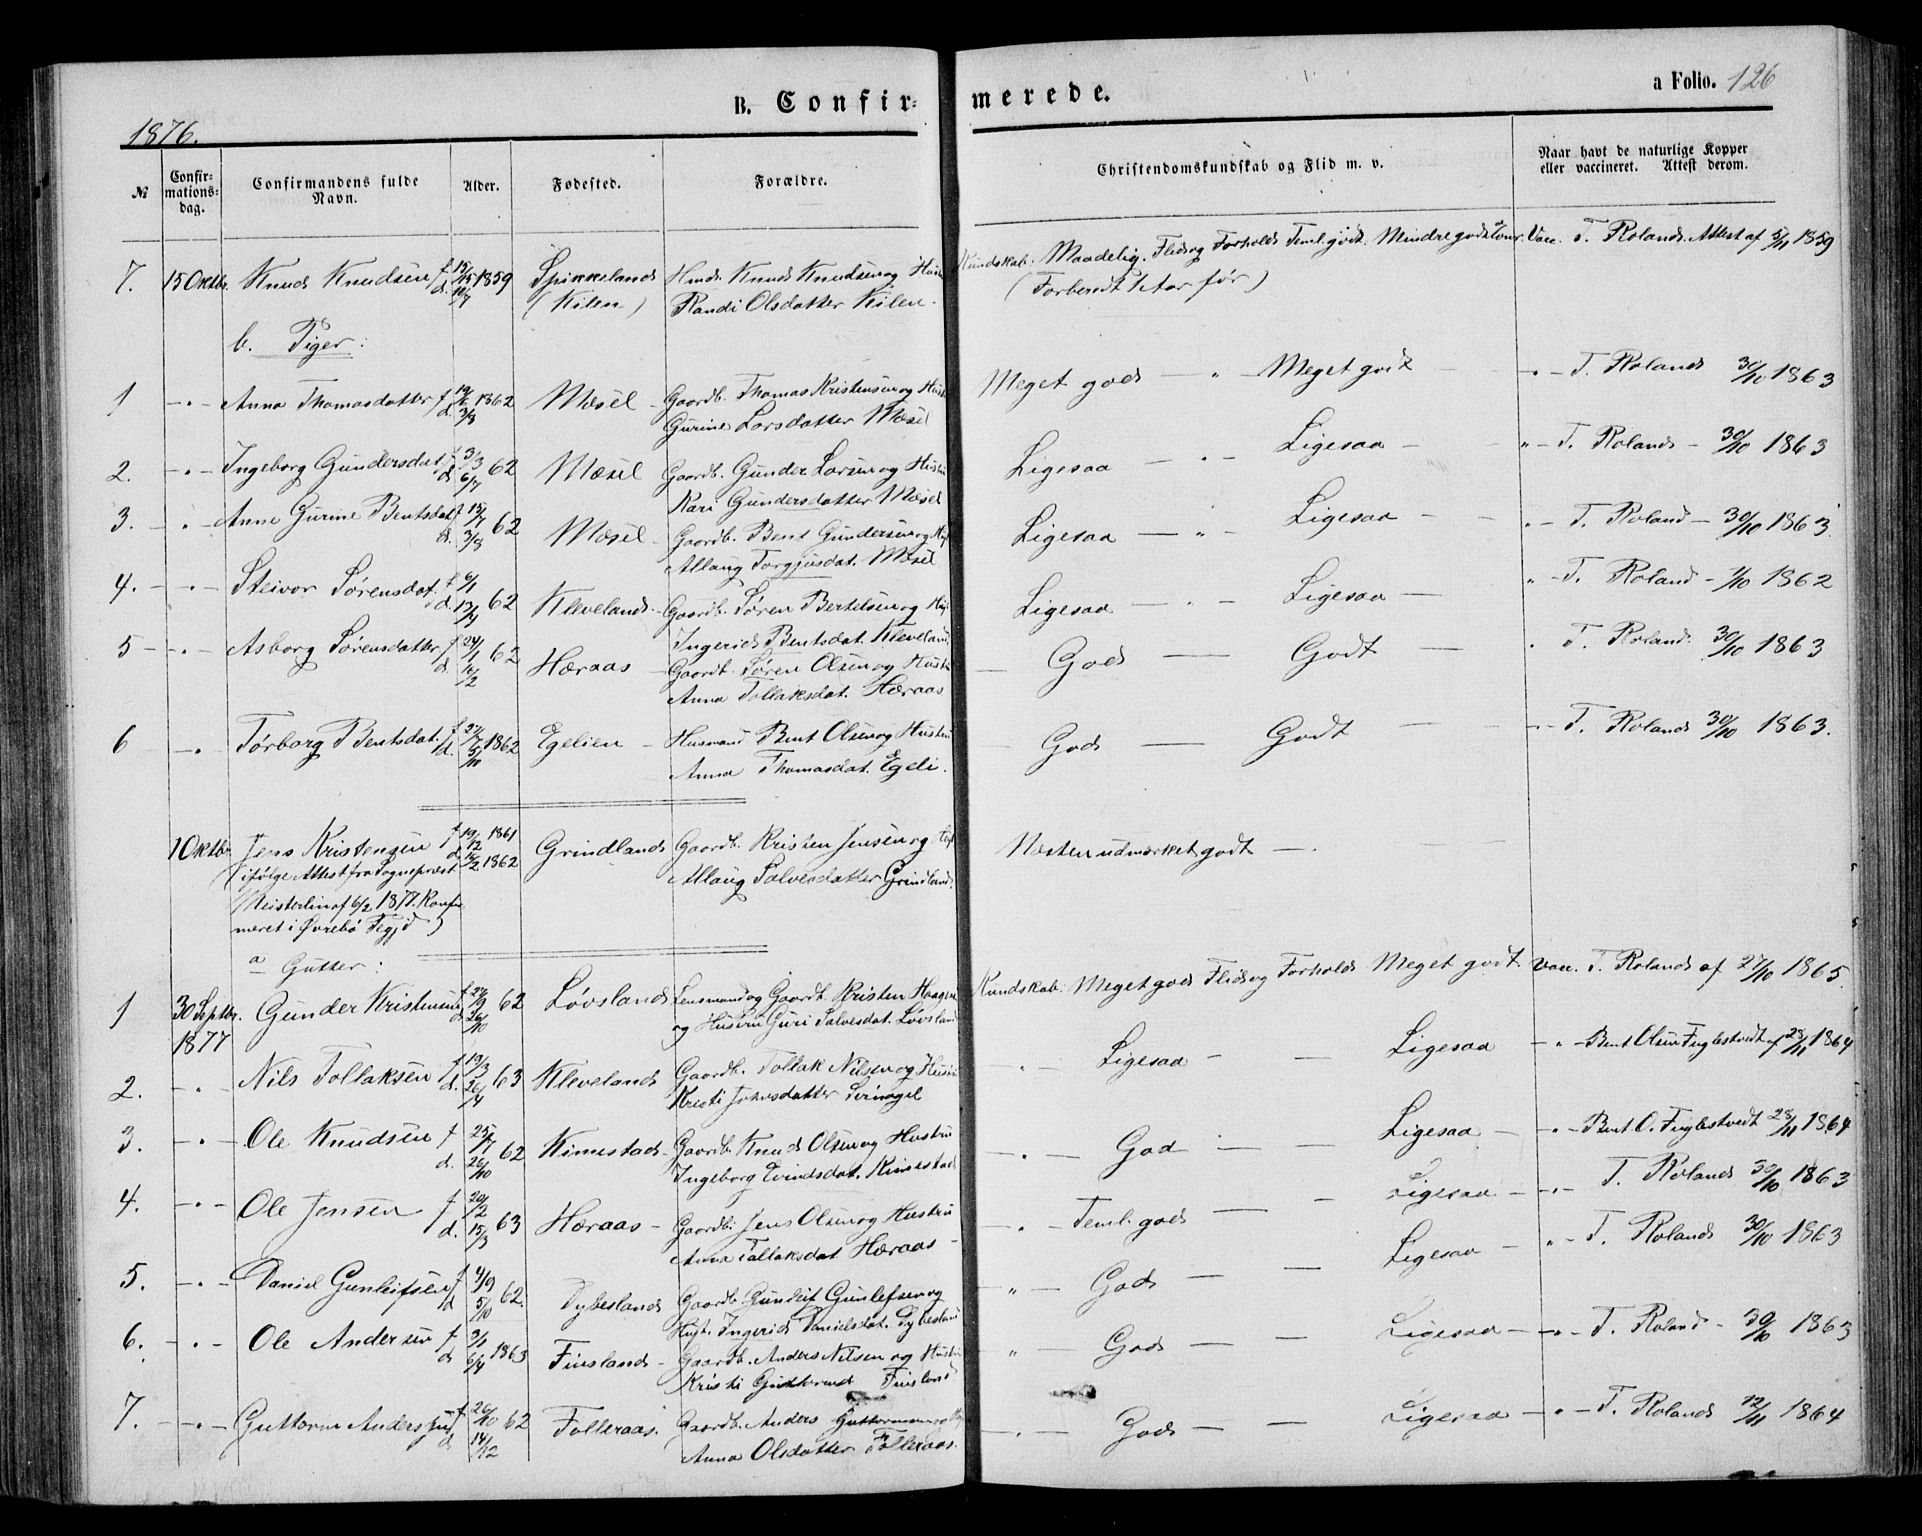 B. Confirmerede.
a Folio. 126
1876.
№ Confirmationsdag. Confirmandens fulde Navn. Alder. Fødested. Forældre. Christendomskundskab og Flid m. v. Naar havt de naturlige Kopper eller vaccineret. Attest derom.
7. 15 Oktbr. Knud Knudsen f 15/ 1859 Spikkeland Huusm. Knud Knudsen og Hustru Kundskab: Maadelig. Flid og Forhold Teml. godt. Mindre godt Vacc. T. Roland. Attest af 5/11 1859
d. (Kilen) Randi Olsdatter Kilen. (Forberedt 1 Aar før)
b. Piger:
1 -"- Anna Thomasdatter f 19/6 1862 Mæsel Gaardb. Thomas Kristensen og Hustru Meget god - " - Meget godt -"- T. Roland 30/10 1863
d. 3/8 Gurine Larsdatter Mæsel
2. -"- Ingeborg Gundersdat. f 3/3 62 Mæsel Gaardb. Gunder Larsen og Hustru Ligesaa -"- Ligesaa -"- T. Roland - 30/10 1863
d. 6/7 Kari Gundersdatter Mæsel
3. -"- Anne Gurine Bentsdat. f 15/7 62 Mæsel Gaardb. Bent Gundersen og Hust. Ligesaa -"- Ligesaa -"- T. Roland - 30/10 1863.
d. 3/8 Allaug Torgjusdat. Mæsel
4. -"- Steivor Sørensdat. f 6/1 62 Kleveland Gaardb. Søren Bertelsen og Hust. Ligesaa -"- Ligesaa -"- T. Roland - /10 1862
d. 13/4 Ingerid Bentsdat. Kleveland.
5 -"- Asborg Sørensdatter f 24/1 62 Hæraas Gaardb. Søren Olsen og Hustru God - Godt " T. Roland. 30/10 1863
d. /2 Anna Tollaksdat. Hæraas
6 -"- Tørborg Bentsdat. f 27/7 1862 Egelien Husmand Bent Olsen og Hustru God - Godt -"- T. Roland 30/10 1863.
d. 5/10 Anna Thomasdat. Egeli.
1 Oktbr. Jens Kristensen f 19/12 1861 Grindland Gaardb. Kristen Jensen og Hust. Næsten udmærket godt -
d. /2 1862 Allaug Salvesdatter Grindland.
(ifølge Attest fra Sognepræst
Meisterlin af 6/2 1877. Konfirmeret i Øvrebø )
a Gutter:
1 30 Septbr. 1877 Gunder Kristensen f 27/9 62 Løvsland Lensmand og Gaardb. Kristen Haagensen Kundskab: Meget god Flid og Forhold Meget godt. Vacc. T. Roland af 27/10 1865.
d. 26/10 og Hustru Guri Salvesdat. Løvsland
2. -"- Nils Tollaksen f 19/3 63 Kleveland Gaardb. Tollak Nilsen og Hustru -"- Ligesaa - Ligesaa -"- Bent Olsen Fuglestvedt af 28/11 1864
d. 26/4 Kristi
3. -"- Ole Knudsen f 25/7 62 Kimestad Gaardb. Knud Olsen og Hustru -"- God - Ligesaa -"- Bent O. Fuglestvedt 28/11 1864
d. 26/10 Ingeborg Evindsdat. Kimestad
4. -"- Ole Jensen f 20/12 d. 15/3 63 Hæraas - Gaardb: Jens Olsen og Hustru -"- Teml. god - Ligesaa -"- T. Roland 30/10 1863
Anna Tallaksdat Hæraas
5. -"- Daniel Gunleifsen f 4/9 62. Dybesland Gaardb. Gunleif Gunlefsen og " - God - Ligesaa -"- T. Roland 30/10 1863
d 5/10 Hust. Ingerid Danielsdat. Dybesland
6. -"- Ole Andersen f 3/1 1863 Finsland - Gaardb. Anders Nilsen og Hustru " - God - Ligesaa -"- T. Roland - 30/10 1863
d 6/4 Kristi Finsland
7. -"- Guttorm Andersen f 26/10 62 Folleraas. Gaardb. Anders Guttormsen og Hust. -"- God - Ligesaa -"- T. Roland 12/11 1864
d 14/12 Anna Olsdatter Folleraas.